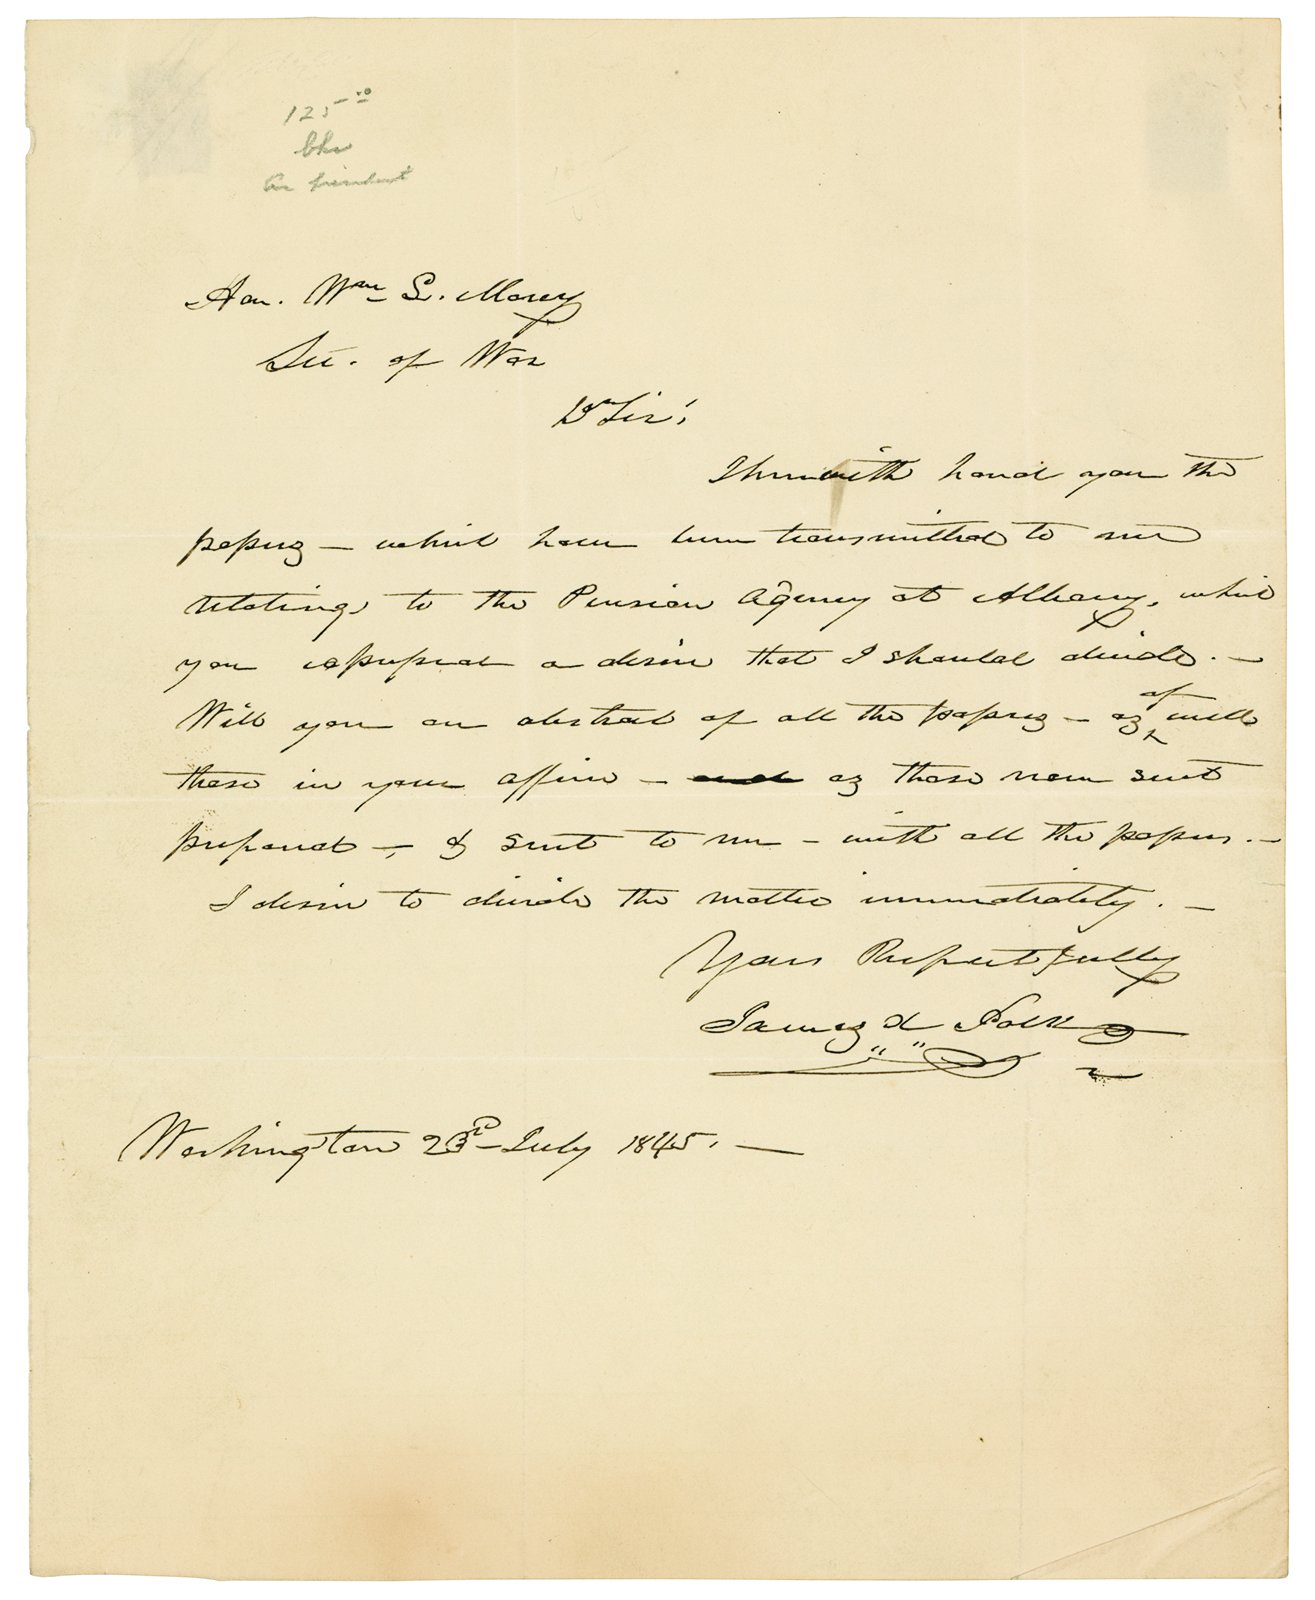 125 00
Hon. Wm L. Marcy
Sec. of War
Dr Sir;
I herewith hand you the
papers – which have been transmitted to me
relating to the Pension Agency at Albany, which
you expressed a desire that I should decide. –
Will you an abstract of all the papers – as of well
these in your office – as those now sent
prepared –, & sent to me – with all the papers. –
I desire to decide the matter immediately. –
Yours Respectfully
James K Polk
Washington 23d July 1845. –